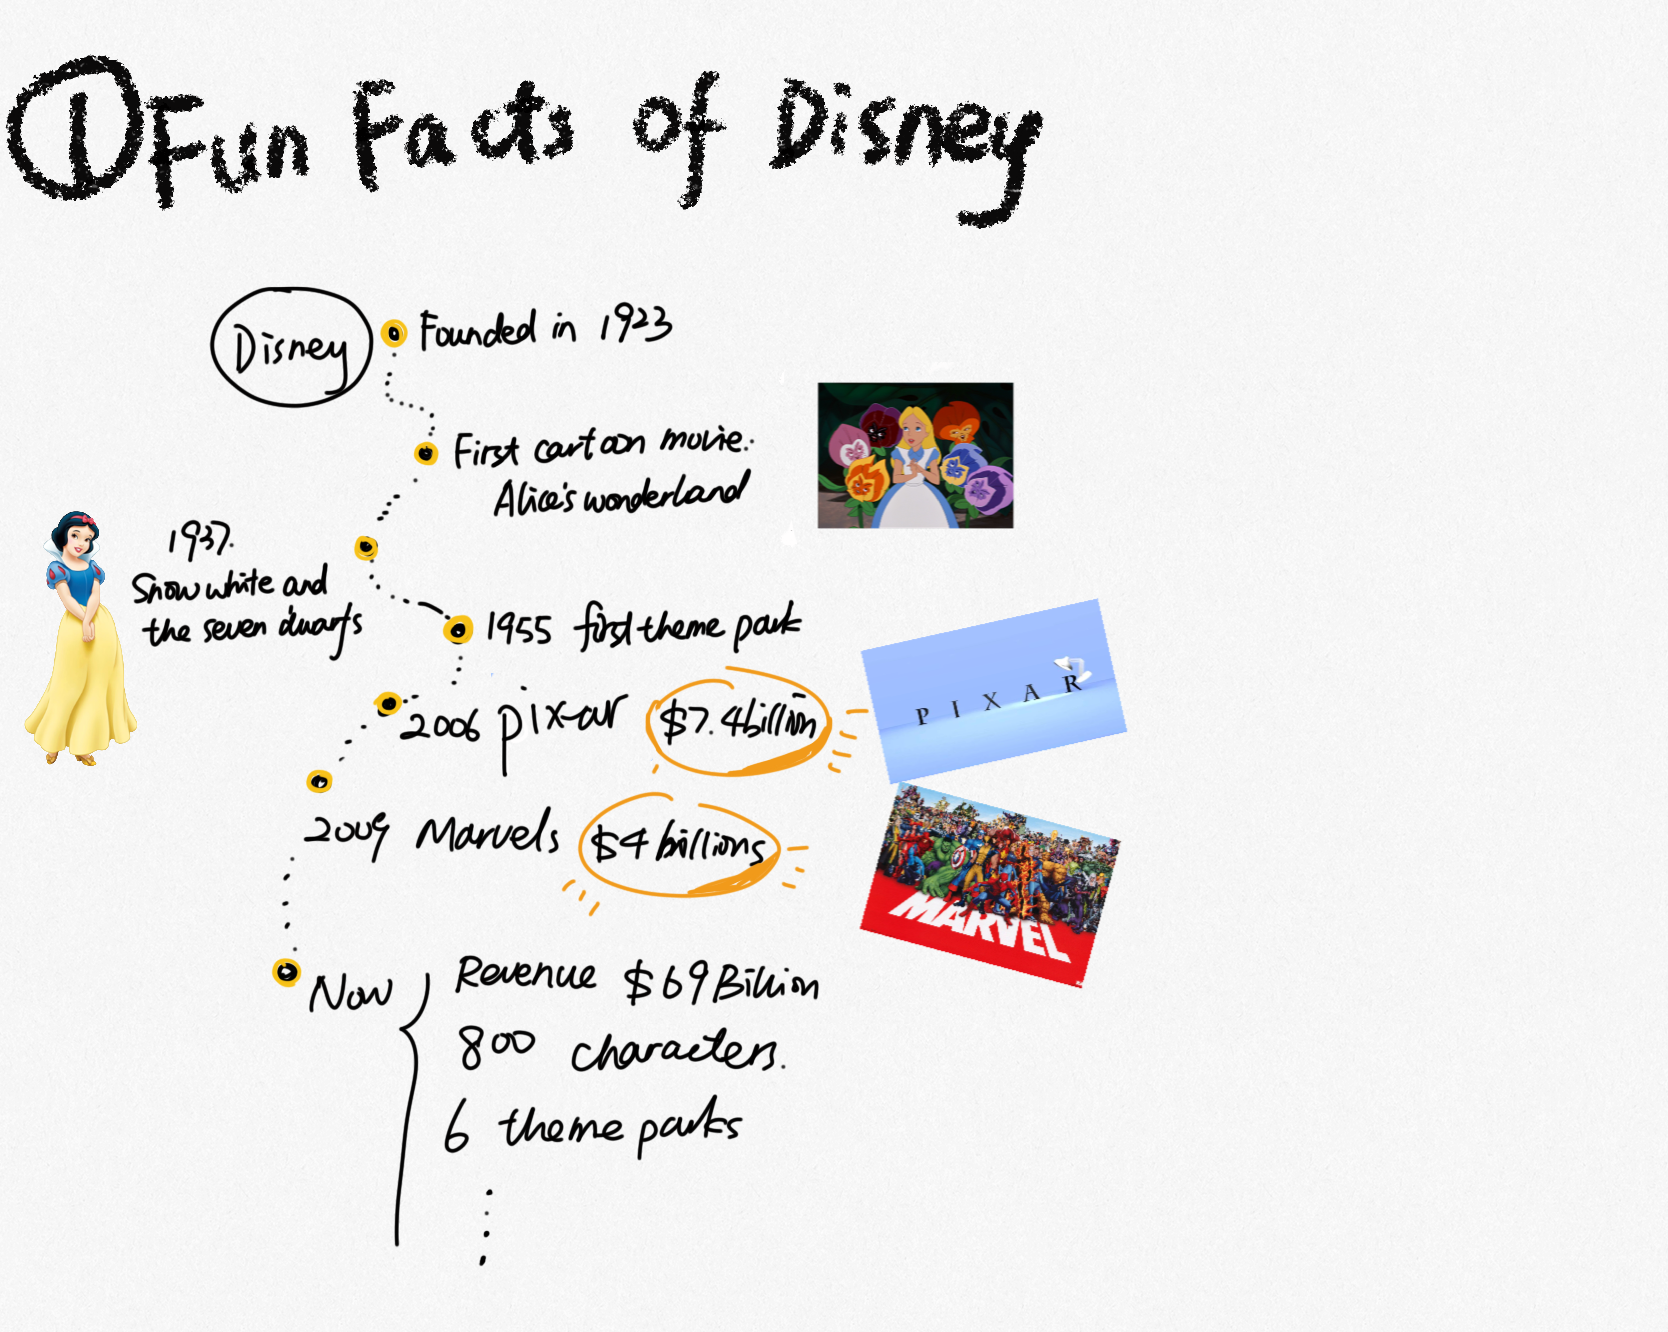 ① Fun Facts of Disney
Disney
Founded in 1923
First cartoon movie:
Alice's wonderland
1937.
Snow white and
the seven dwarfs
1955 first theme park
2006 pixar $7.4billion
PIXAR
2009 Marvels $4 billions
MARVEL
Now
Revenue $69Billion
800 characters.
6 theme parks